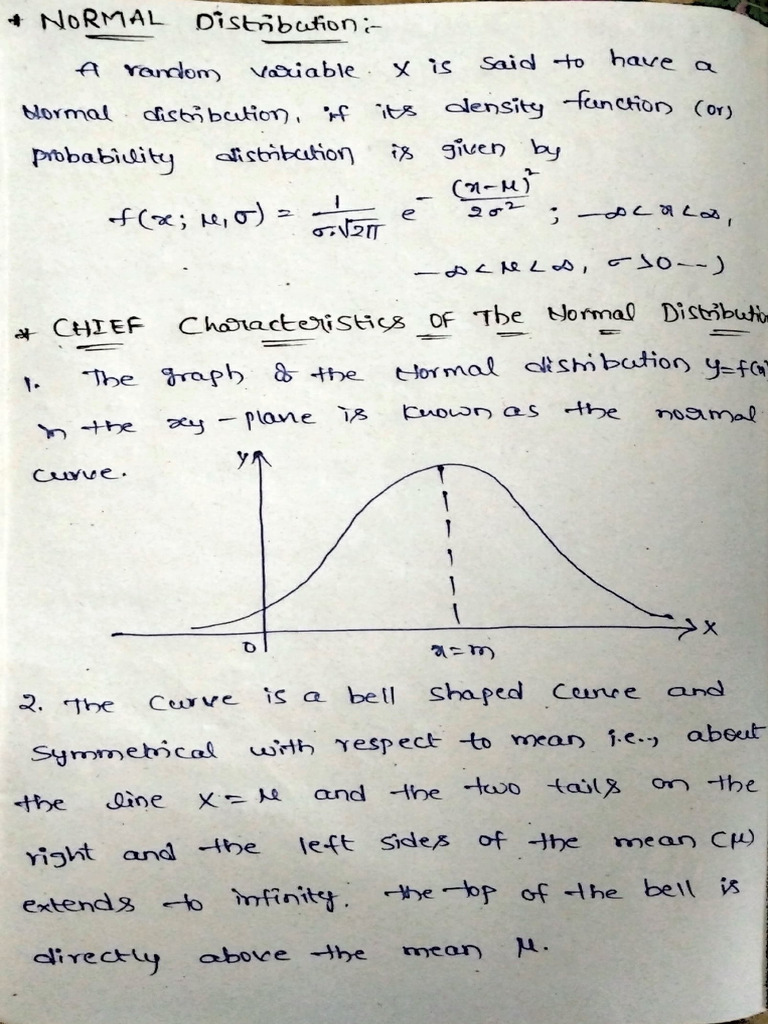 * NORMAL Distribution:-
A random variable X is said to have a
Normal distribution, if its density function (or)
probability distribution is given by
f(x; μ, σ) = 1/(σ.√2π) e^-(x-μ)²/2σ² ; -∞<x<∞,
-∞<μ<∞, σ>0--)
* CHIEF Characteristics OF The Normal Distribution
1. The graph of the Normal distribution y=f(x)
in the xy-plane is known as the normal
curve.
y
0
x=m
X
2. The curve is a bell shaped curve and
symmetrical with respect to mean i.e.., about
the line X=μ and the two tails on the
right and the left sides of the mean (μ)
extends to infinity. The top of the bell is
directly above the mean μ.